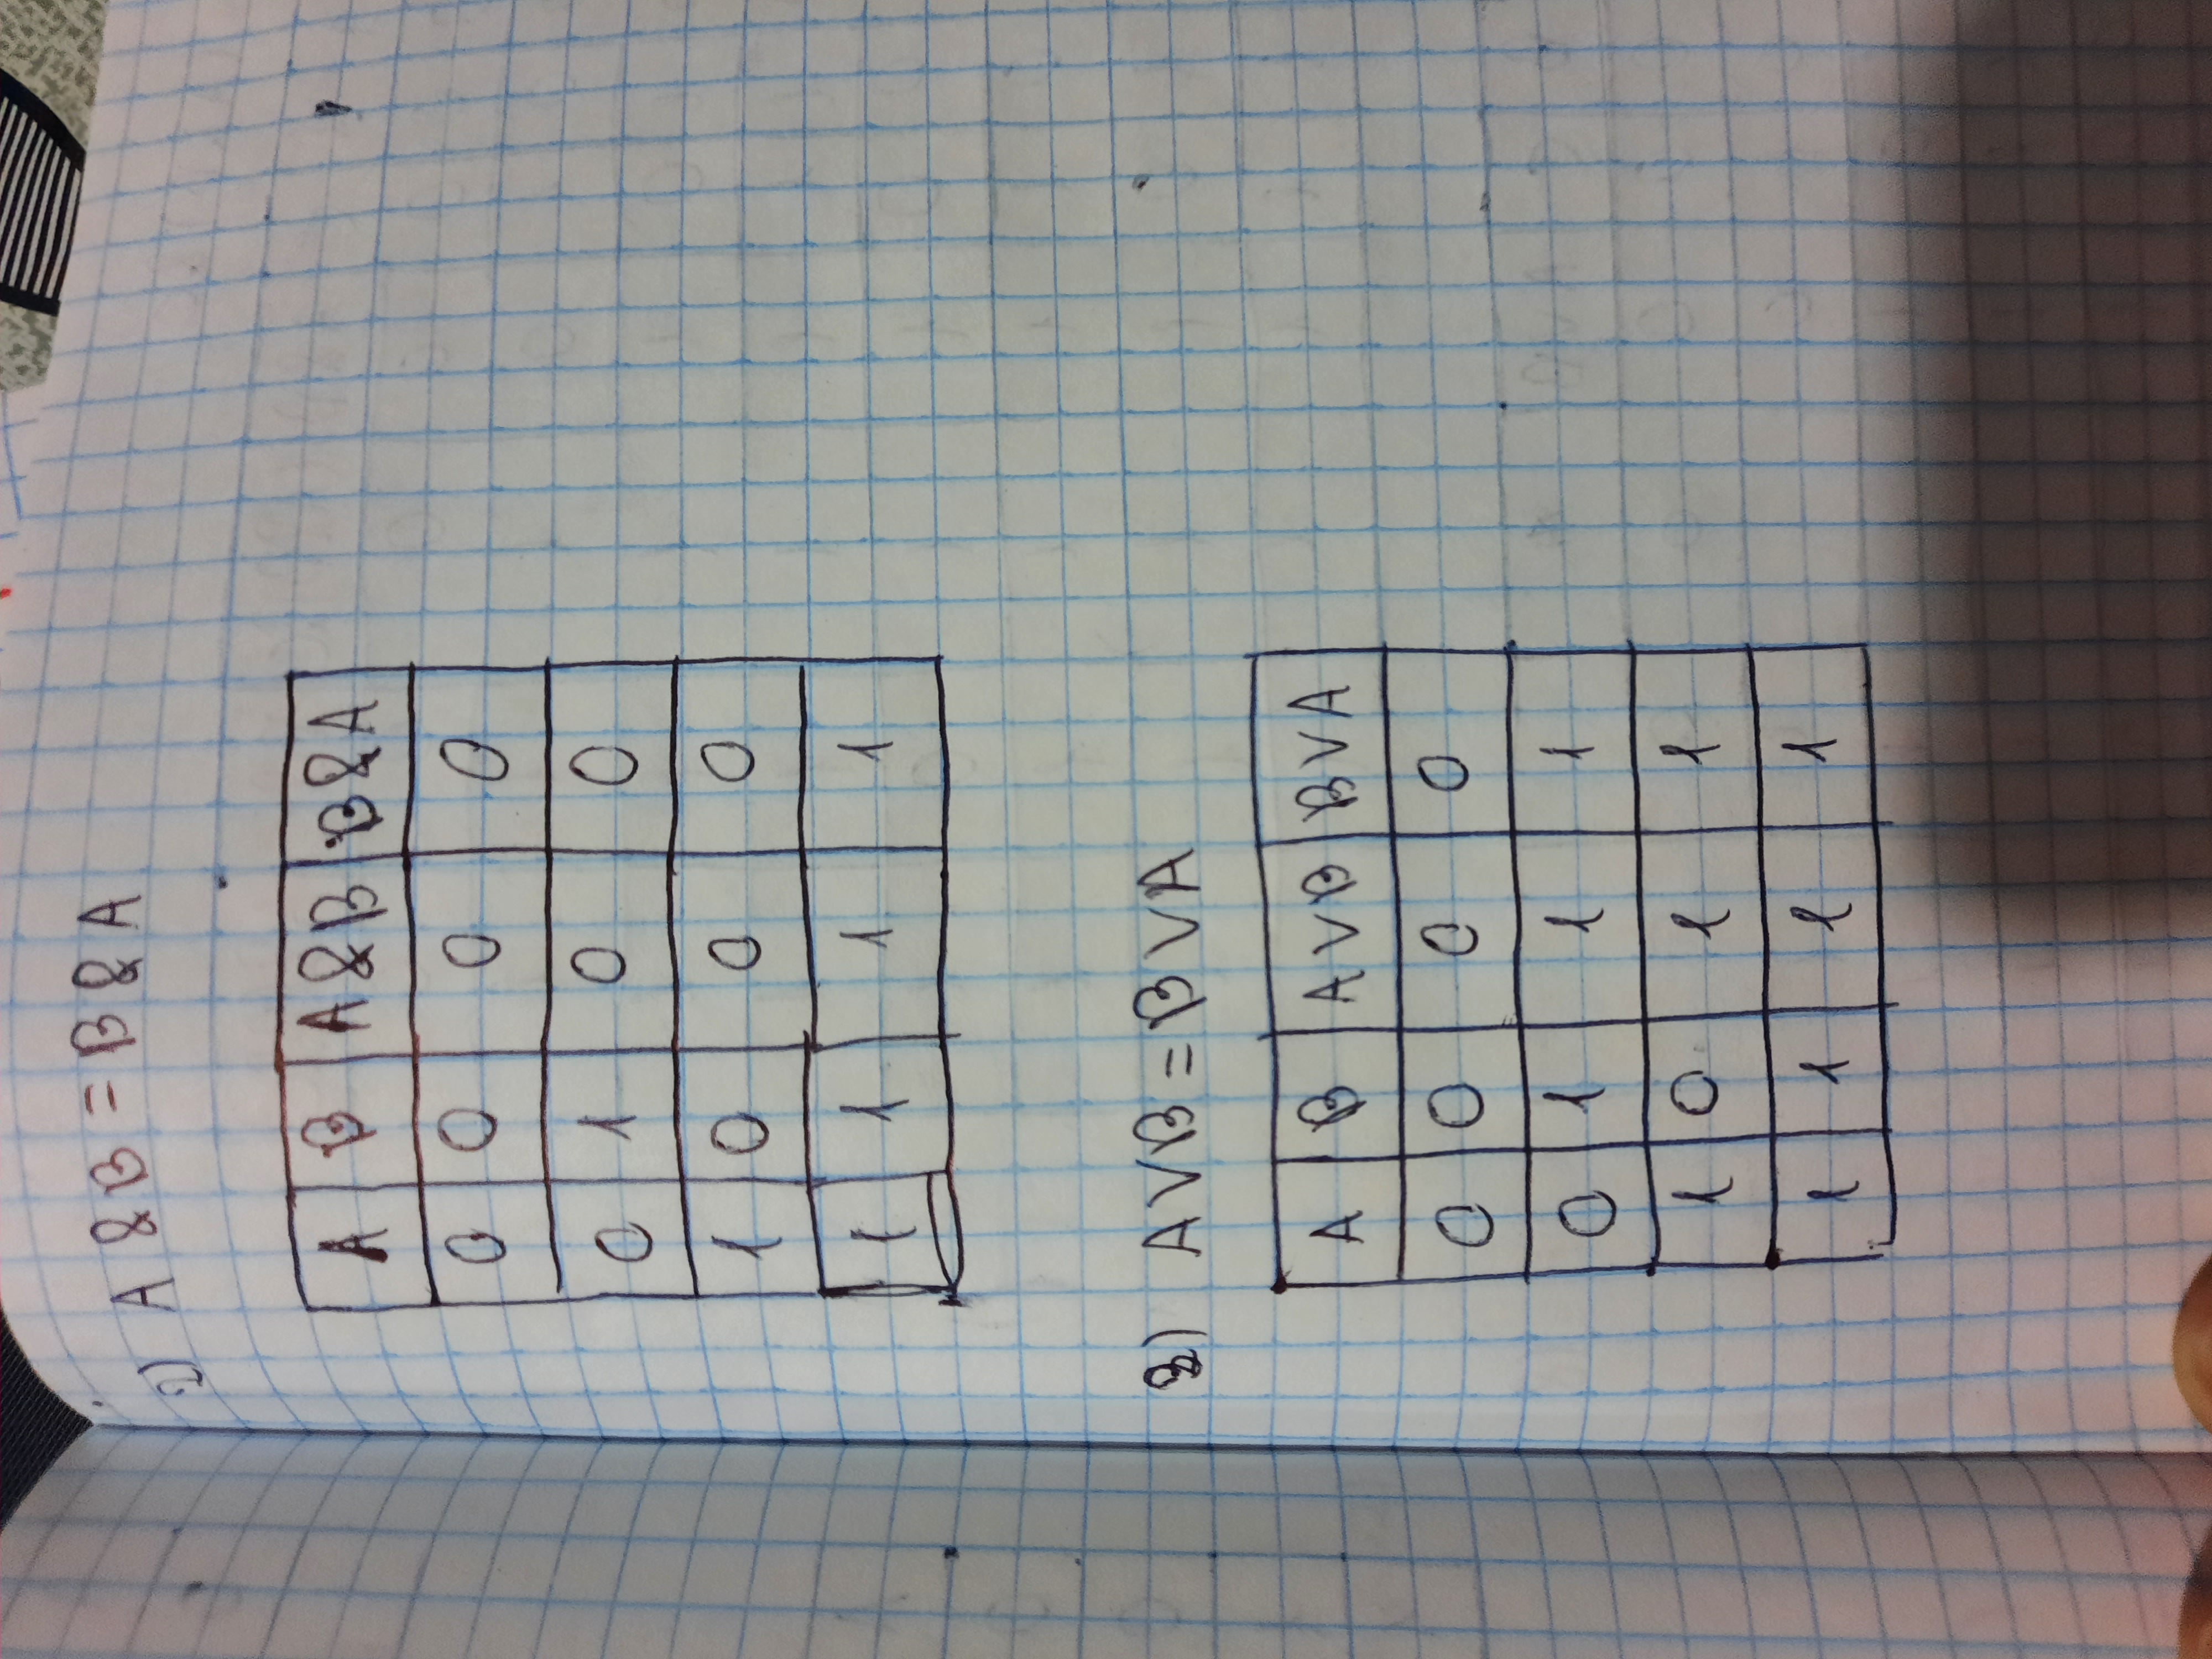 1) A & B = B & A
A B A&B B&A
0 0 0 0
0 1 0 0
1 0 0 0
1 1 1 1
2) A V B = B V A
A B A V B B V A
0 0 0 0
0 1 1 1
1 0 1 1
1 1 1 1